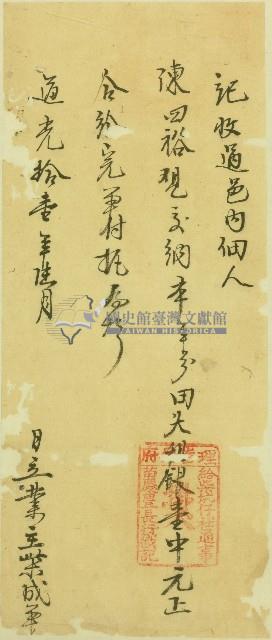 記收過邑內佃人
陳四裕現交納本年分田大租銀壹中元正
合給完單付執為炤
道光拾壹年陸月
日立業主榮成單
國史館臺灣文獻館
TAIWAN HISTORICA